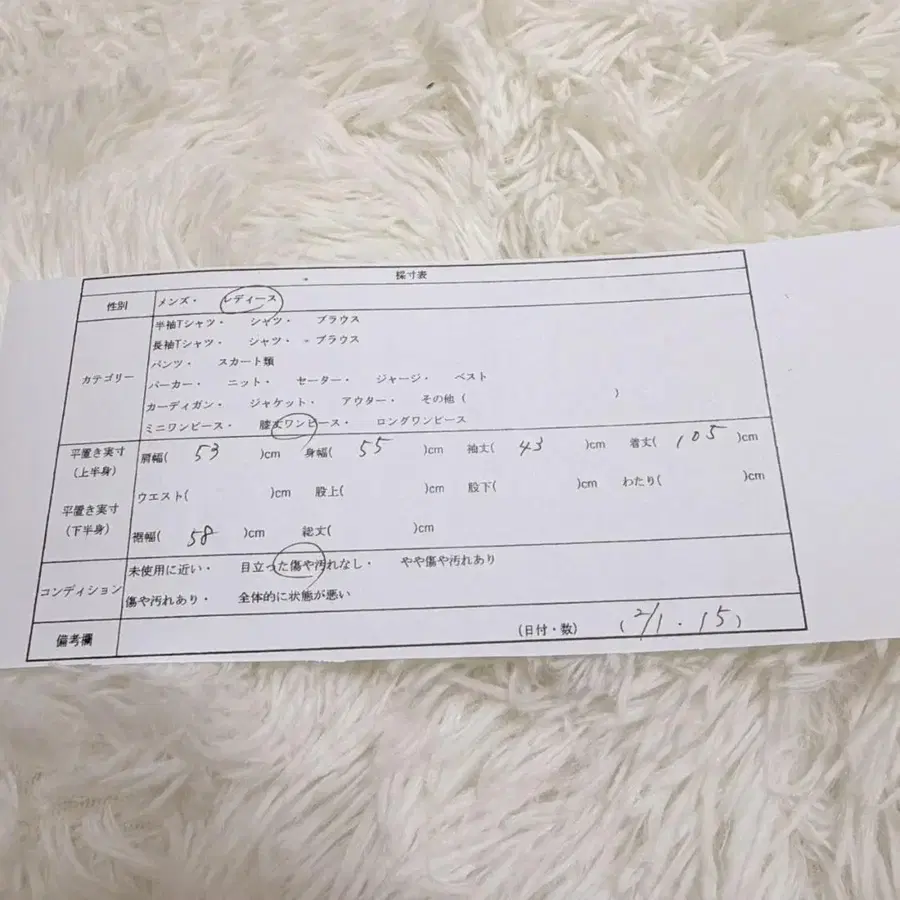 採寸表
性別 メンズ・ レディース
カテゴリー
半袖Tシャツ・ シャツ・ ブラウス
長袖Tシャツ・ シャツ・ ブラウス
パンツ・ スカート類
パーカー・ ニット・ セーター・ ジャージ・ ベスト
カーディガン・ ジャケット・ アウター・ その他 ( )
ミニワンピース・ 膝丈ワンピース・ ロングワンピース
平置き実寸 (上半身)
肩幅( 53 )cm 身幅( 55 )cm 袖丈( 43 )cm 着丈( 105 )cm
平置き実寸 (下半身)
ウエスト( )cm 股上( )cm 股下( )cm わたり( )cm
裾幅( 58 )cm 総丈( )cm
コンディション
未使用に近い・ 目立った傷や汚れなし・ やや傷や汚れあり
傷や汚れあり・ 全体的に状態が悪い
備考欄 (日付・数) (2/1・15)